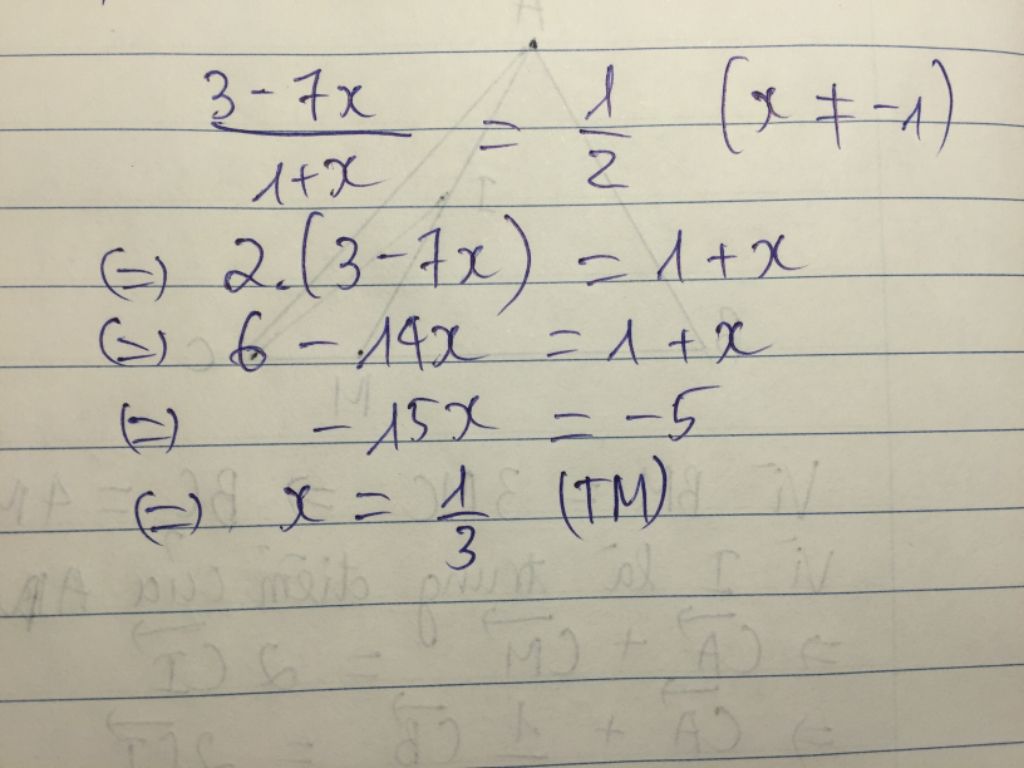 (3-7x)/(1+x) = 1/2 (x ≠ -1)
(=) 2.(3-7x) = 1+x
(=) 6 - 14x = 1+x
(=) -15x = -5
(=) x = 1/3 (TM)